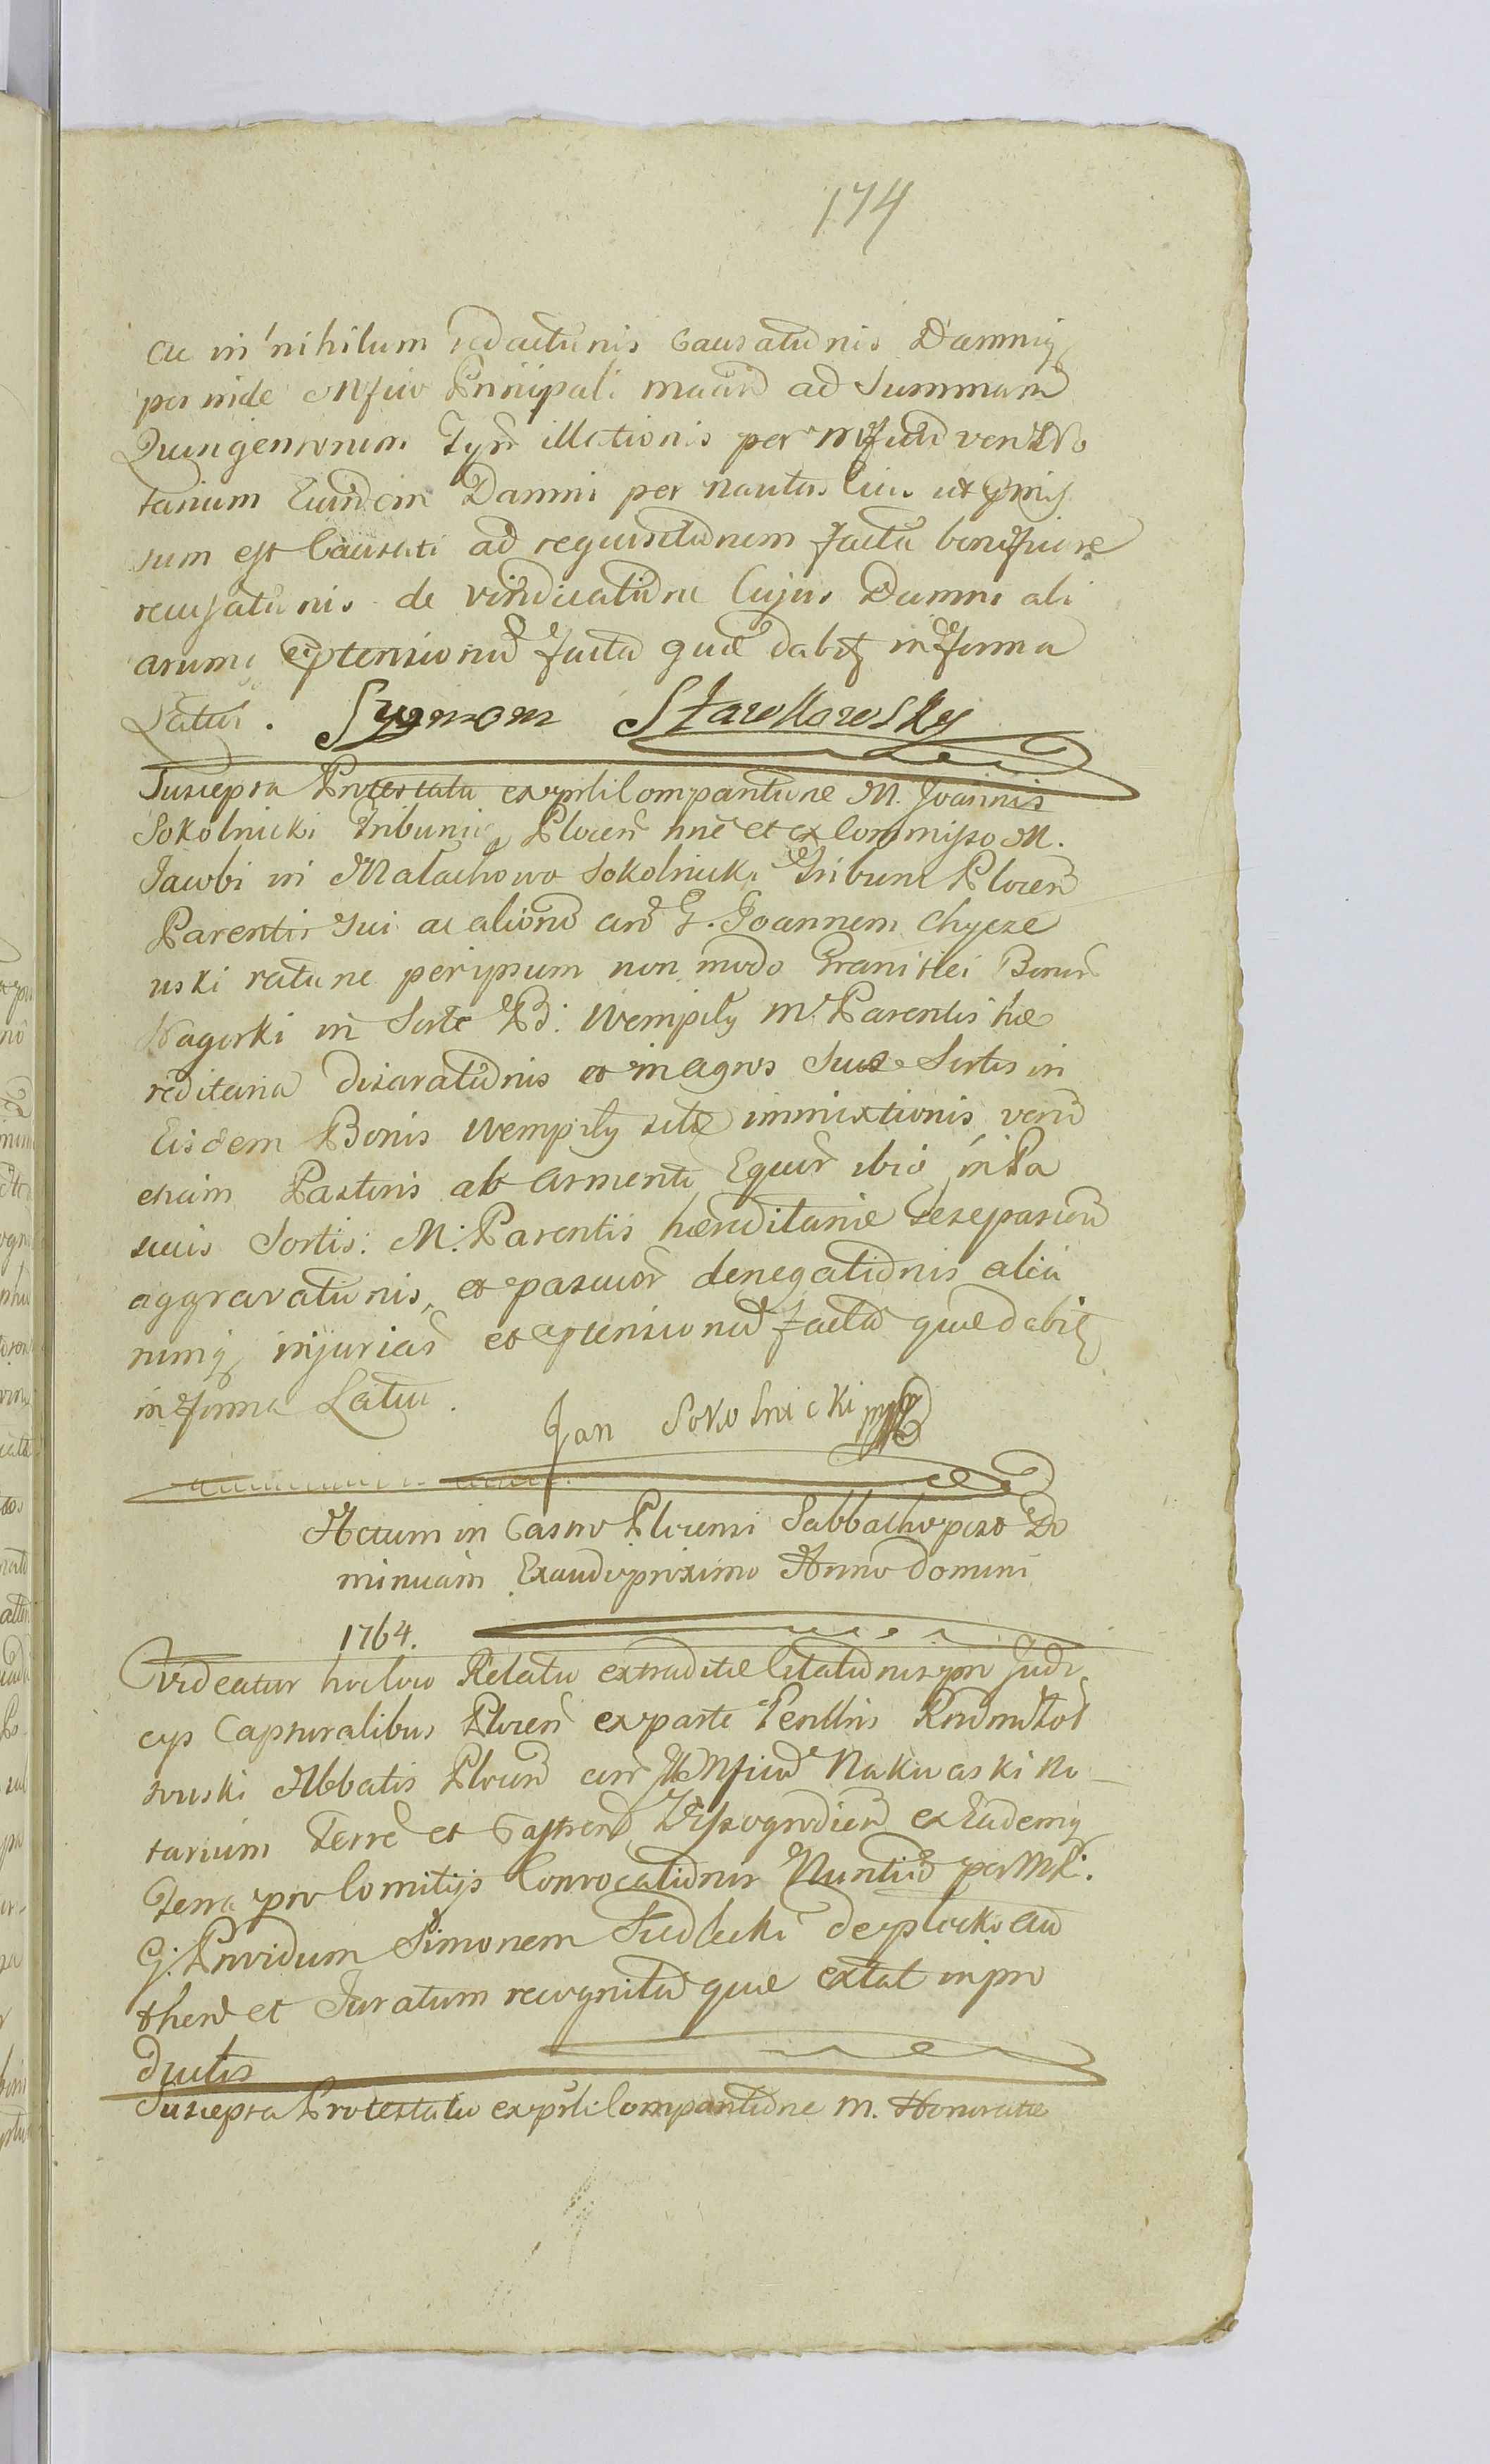 174
ac in nihilum redactionis Causationis Damniq
per inde Mfico Principali maā ad Summam
Quingentorum Tyn illationis per Mficū ven No
tarium Eiusdem Damni per nautas licu ut pmis
sum est Causati ad requisitionem factā bonificare
recusationis de vindicatione Cujus Damni ali
arumq ptensionū facta quæ dabit in forma
Latius. Symon Stawkowsky
Suscepta Protestatio ex psti Comparitione M. Joannis
Sokolnicki Tribuni Plocen nnē et ex Commisso M.
Jacobi in Małachowo Sokolnicki Tribuni Plocen
Parentis sui ac aliōnō cnō G. Joannem Chycze
wski ratione per ipsum non modo Graniciei Bonor
Nagorki in Sorte B: Wempiły M. Parentis hæ
reditaria disarationis et in agros suæ Sortis in
Eisdem Bonis Wempiły sitæ immixtionis verū
etiam Pastoris ab armento Equor ibiq in Pa
scuis Sortis M: Parentis hæreditariæ
aggravationis, et pascuor denegationis alia
rumq injuriar et ptensionū facta quæ dabit
in forma Latiu.
Jan Sokolnicki mp
Actum in Castro Plocensi Sabbatho post Do
minicam Exaudi proximo Anno Domini
1764.
Videatur hocloco Relatio extraditæ Citationis pro Judi
cys Capturalibus Plocen ex parte Perillris Rndmi
wski Abbatis Plocen cnō Mficū Nakwaski No
tarium Terrē et Castren Wyszogrodien ex Eademq
Terra pro Comitijs Convocationis Nuntiū per Mi.
G. Providum Simonem Siedlecki de Plocko au
then et Juratum recognita quæ extat in pro
ductis
Suscepta Protestatio ex psti Comparitione M. Honoratæ